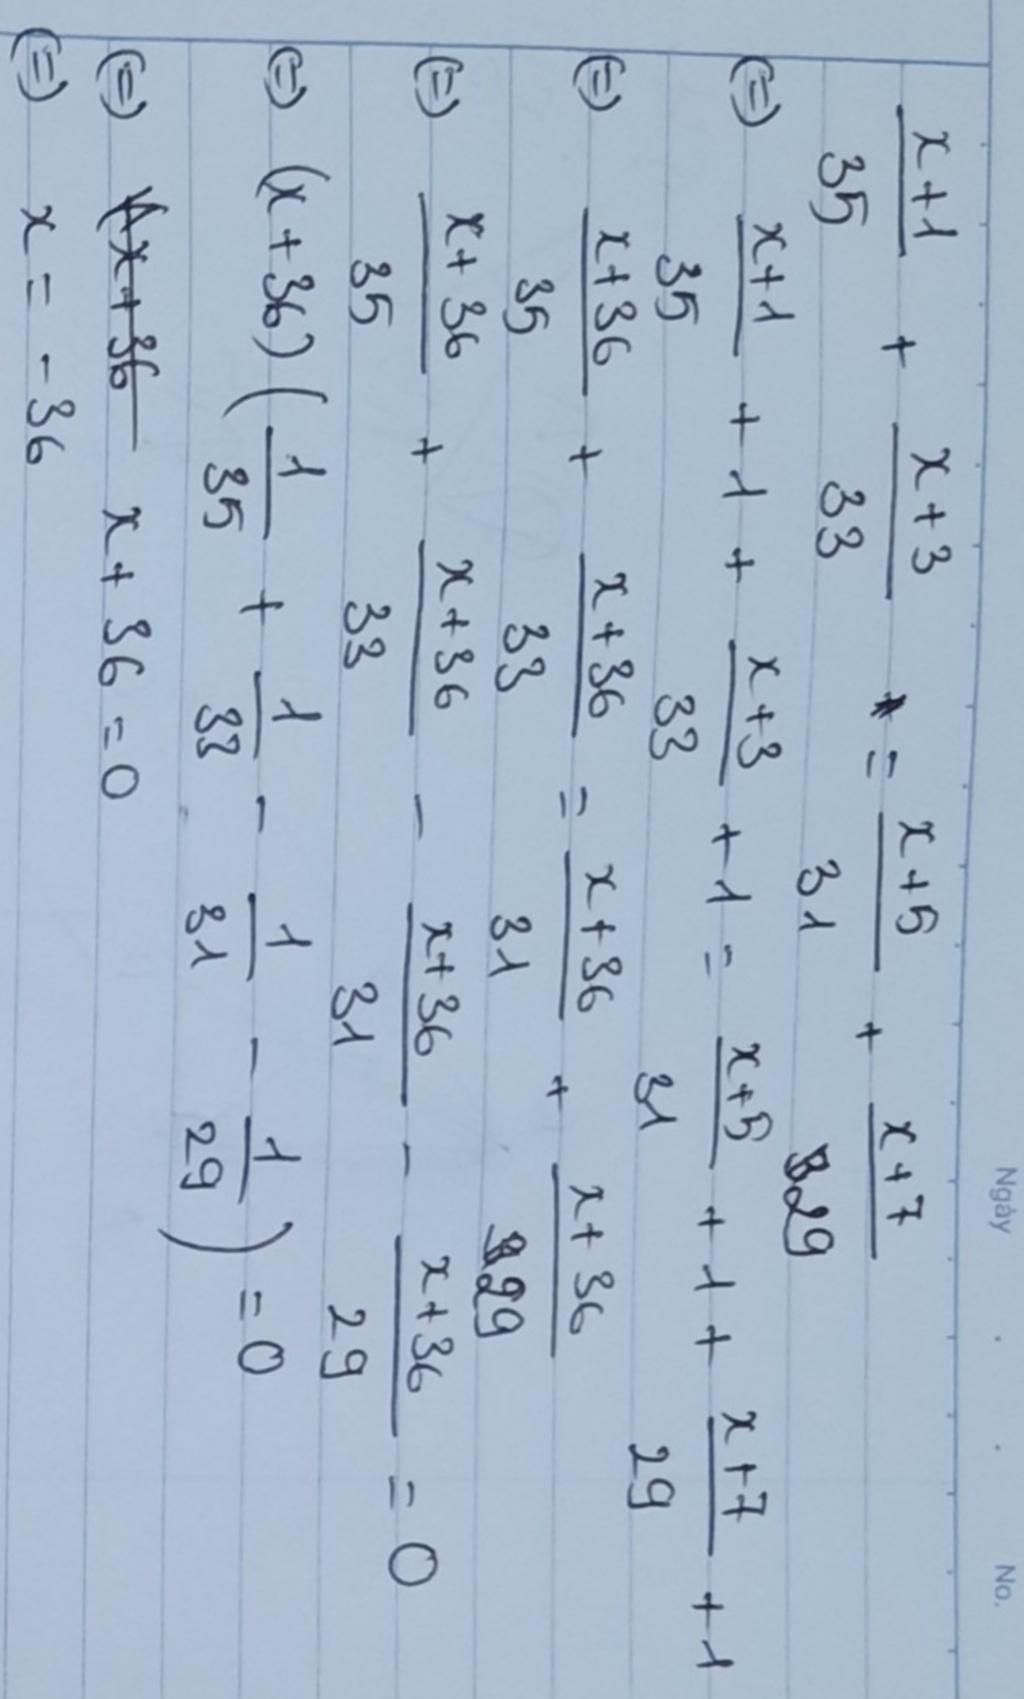 Ngày . . No.
\frac{x+1}{35} + \frac{x+3}{33} = \frac{x+5}{31} + \frac{x+7}{29}
(=) \frac{x+1}{35} + 1 + \frac{x+3}{33} + 1 = \frac{x+5}{31} + 1 + \frac{x+7}{29} + 1
(=) \frac{x+36}{35} + \frac{x+36}{33} = \frac{x+36}{31} + \frac{x+36}{29}
(=) \frac{x+36}{35} + \frac{x+36}{33} - \frac{x+36}{31} - \frac{x+36}{29} = 0
(=) (x+36) (\frac{1}{35} + \frac{1}{33} - \frac{1}{31} - \frac{1}{29}) = 0
(=) (x+36 x+36 = 0
(=) x = -36